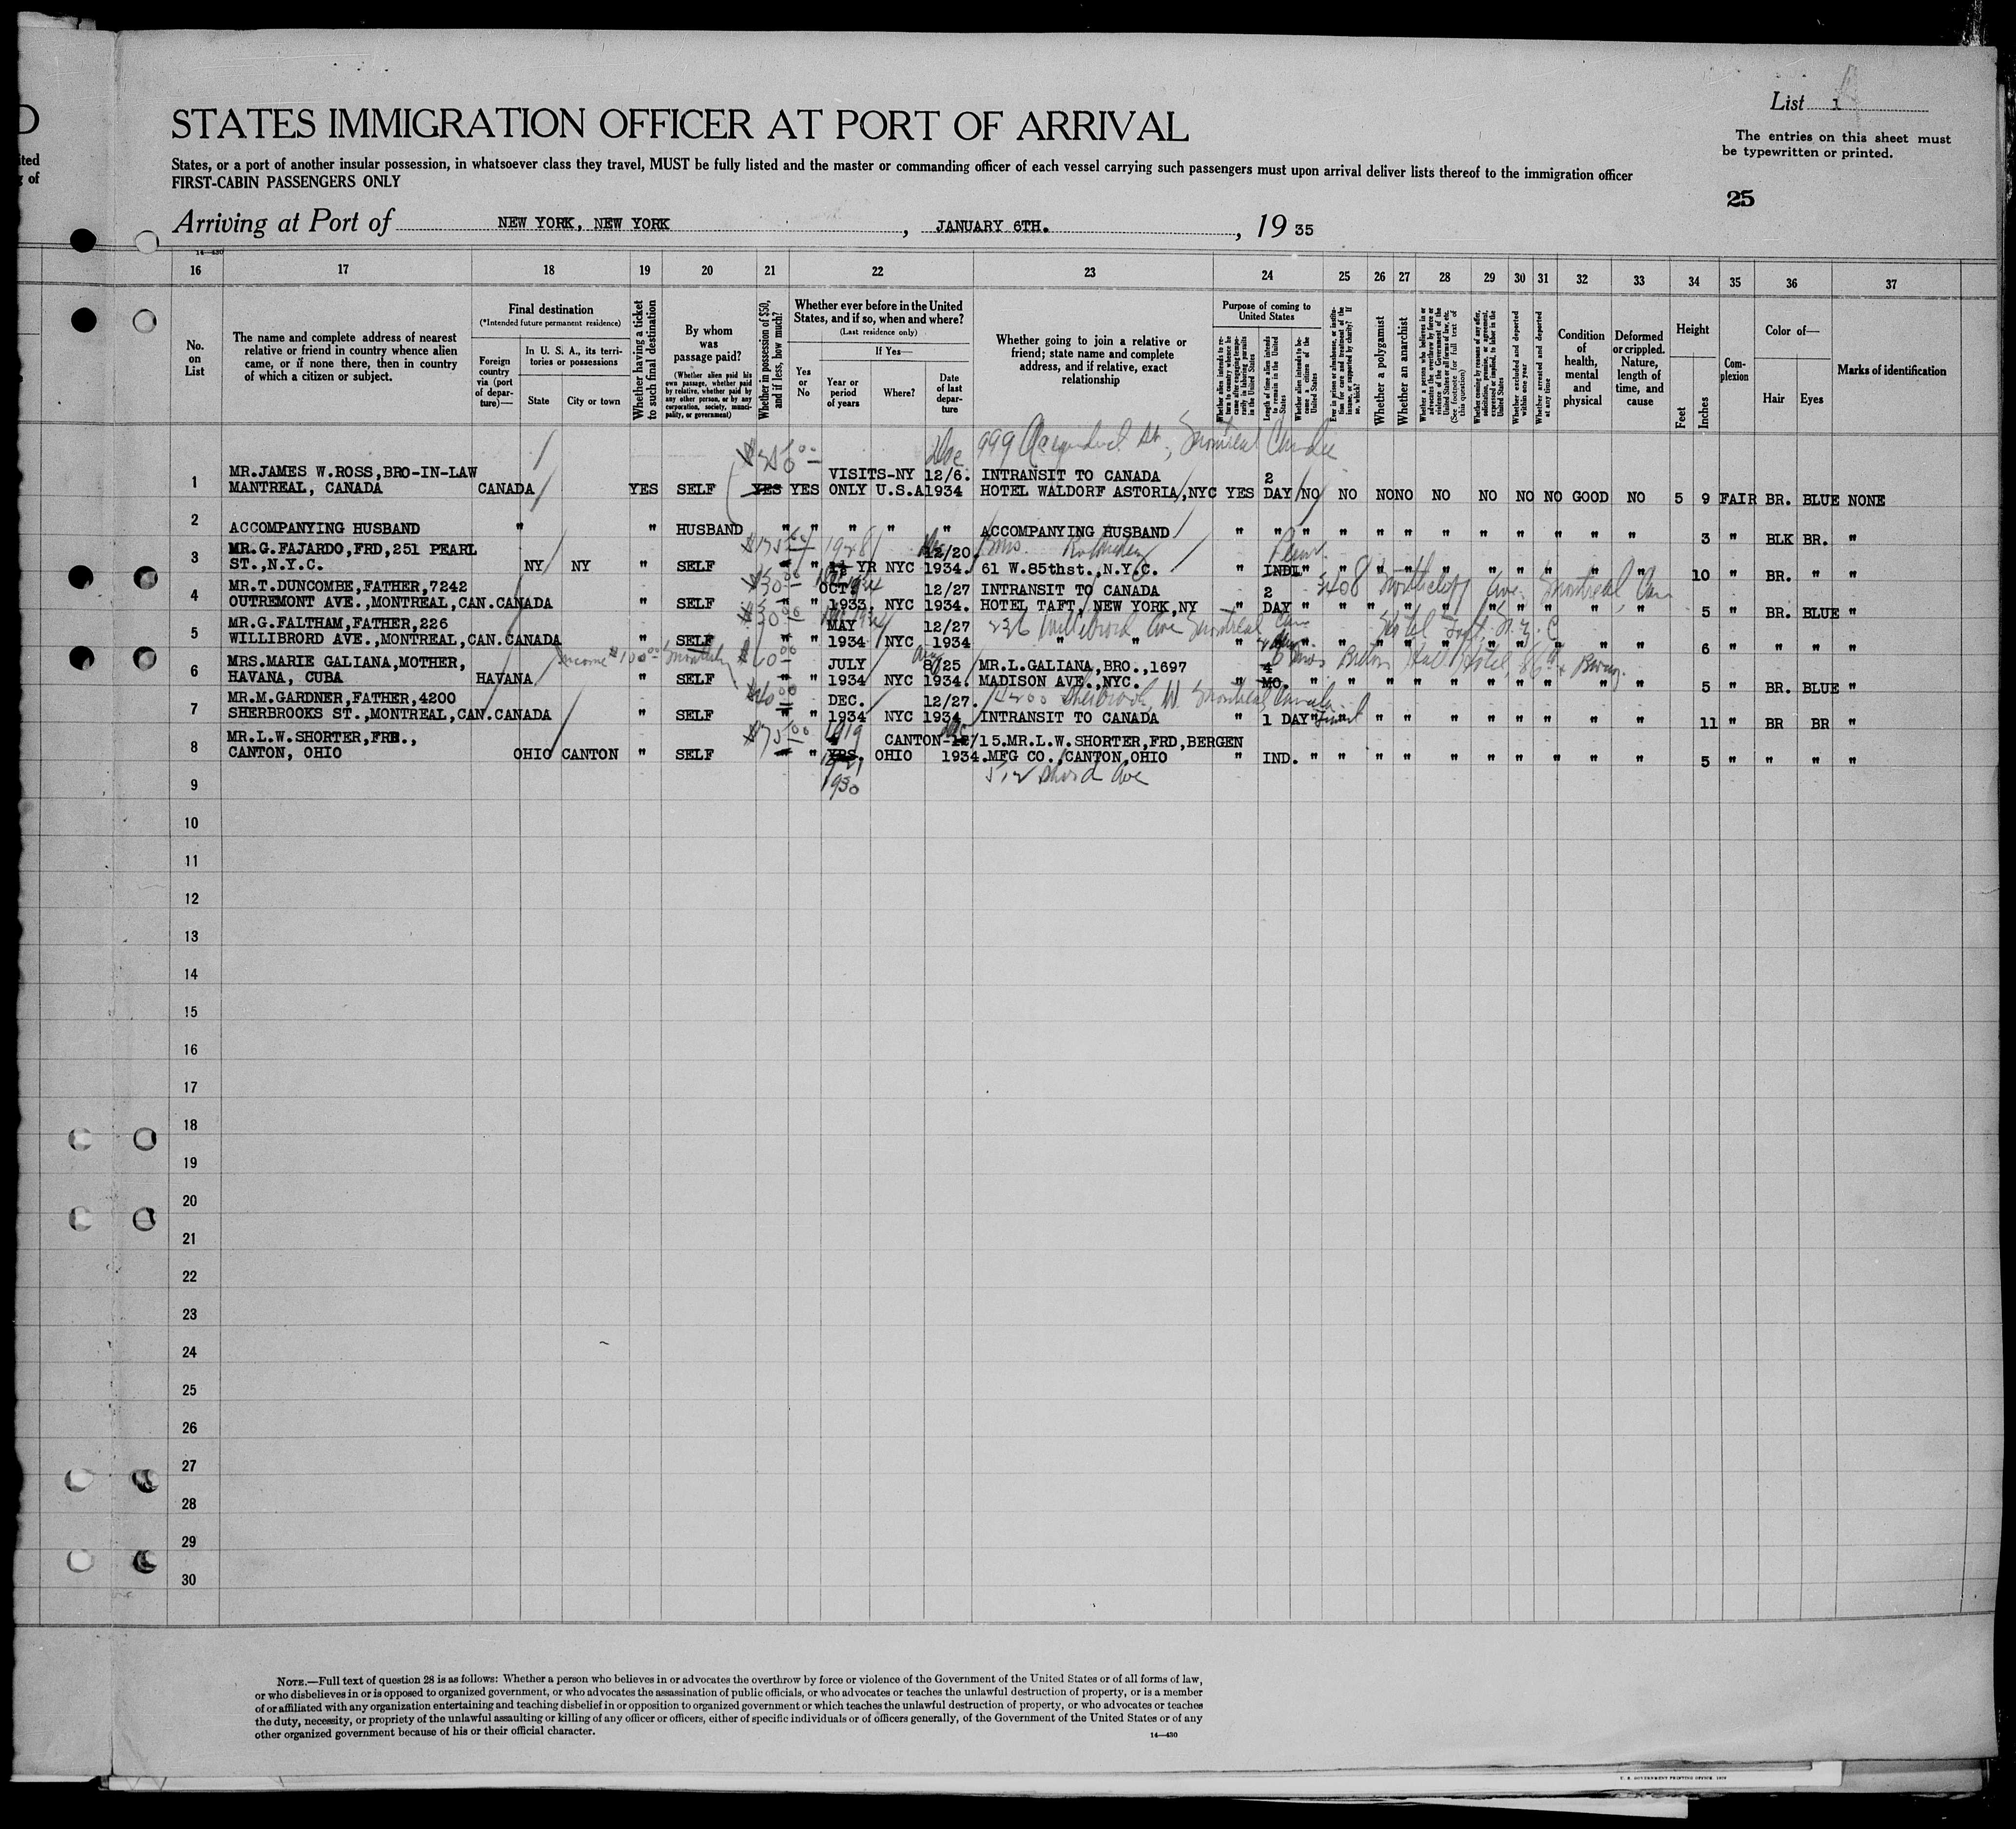 D
ited
g of
List 1
STATES IMMIGRATION OFFICER AT PORT OF ARRIVAL
The entries on this sheet must
be typewritten or printed.
States, or a port of another insular possession, in whatsoever class they travel, MUST be fully listed and the master or commanding officer of each vessel carrying such passengers must upon arrival deliver lists thereof to the immigration officer
FIRST-CABIN PASSENGERS ONLY
25
Arriving at Port of NEW YORK, NEW YORK, JANUARY 6TH., 19 35
14—430
16 17 18 19 20 21 22 23 24 25 26 27 28 29 30 31 32 33 34 35 36 37
No. on List
The name and complete address of nearest relative or friend in country whence alien came, or if none there, then in country of which a citizen or subject.
Final destination
(*Intended future permanent residence)
Foreign country via (port of departure)—
In U. S. A., its territories or possessions
State
City or town
Whether having a ticket to such final destination
By whom was passage paid?
(Whether alien paid his own passage, whether paid by relative, whether paid by any other person, or by any corporation, society, municipality, or government)
Whether in possession of $50, and if less, how much?
Whether ever before in the United States, and if so, when and where?
(Last residence only)
Yes or No
If Yes—
Year or period of years
Where?
Date of last departure
Whether going to join a relative or friend; state name and complete address, and if relative, exact relationship
Purpose of coming to United States
Whether alien intends to return to country whence he came after engaging temporarily in laboring pursuits in the United States
Length of time alien intends to remain in the United States
Whether alien intends to become a citizen of the United States
Ever in prison or almshouse, or institution for care and treatment of the insane, or supported by charity? If so, which?
Whether a polygamist
Whether an anarchist
Whether a person who believes in or advocates the overthrow by force or violence of the Government of the United States or all forms of law, etc. (See footnote for full text of this question)
Whether coming by reasons of any offer, solicitation, promise, or agreement, expressed or implied, to labor in the United States
Whether excluded and deported within one year
Whether arrested and deported at any time
Condition of health, mental and physical
Deformed or crippled. Nature, length of time, and cause
Height
Feet
Inches
Complexion
Color of—
Hair
Eyes
Marks of identification
Dec 999 St., Montreal
1 MR.JAMES W.ROSS,BRO-IN-LAW VISITS-NY 12/6. INTRANSIT TO CANADA 2
MANTREAL, CANADA CANADA YES SELF YES YES ONLY U.S.A 1934 HOTEL WALDORF ASTORIA,NYC YES DAY NO NO NO NO NO NO NO NO GOOD NO 5 9 FAIR BR. BLUE NONE
2 ACCOMPANYING HUSBAND " " HUSBAND " " " " " ACCOMPANYING HUSBAND " " " " " " " " " " " " 3 " BLK BR. "
$175 1928 Dec Mrs.
3 MR.G.FAJARDO,FRD,251 PEARL 12/20.
ST.,N.Y.C. NY NY " SELF " " YR NYC 1934. 61 W.85thst.,N.Y.C. " INDI " " " " " " " " " " 10 " BR. " "
$30.00 3408 Northcliff Ave. Montreal, Can
4 MR.T.DUNCOMBE,FATHER,7242 OCT. 12/27 INTRANSIT TO CANADA 2
OUTREMONT AVE.,MONTREAL,CAN.CANADA " SELF " " 1933. NYC 1934. HOTEL TAFT, NEW YORK,NY " DAY " " " " " " " " " " 5 " BR. BLUE "
$30.00 236 Willibrord Ave Montreal Can Hotel Taft, N.Y.C
5 MR.G.FALTHAM,FATHER,226 MAY 12/27
WILLIBRORD AVE.,MONTREAL,CAN.CANADA " SELF " " 1934 NYC 1934 " " " " " " " " " " " " " 6 " " " "
Income $100.00 monthly Aug Hall Hotel, 86th
6 MRS.MARIE GALIANA,MOTHER, JULY 8/25 MR.L.GALIANA,BRO.,1697 4
HAVANA, CUBA HAVANA " SELF " " 1934 NYC 1934. MADISON AVE.,NYC. " MO. " " " " " " " " " " " 5 " BR. BLUE "
$40.00 4200 Sherbrook, W. Montreal Canada
7 MR.M.GARDNER,FATHER,4200 DEC. 12/27.
SHERBROOKS ST.,MONTREAL,CAN.CANADA " SELF " " 1934 NYC 1934 INTRANSIT TO CANADA " 1 DAY " " " " " " " " " " " 11 " BR BR "
$75.00 1919 Dec
8 MR.L.W.SHORTER,FRE., CANTON-12/15.MR.L.W.SHORTER,FRD,BERGEN
CANTON, OHIO OHIO CANTON " SELF " " YRS. OHIO 1934.MFG CO.,CANTON,OHIO " IND. " " " " " " " " " " " 5 " " " "
1930 Ave
9
10
11
12
13
14
15
16
17
18
19
20
21
22
23
24
25
26
27
28
29
30
NOTE.—Full text of question 28 is as follows: Whether a person who believes in or advocates the overthrow by force or violence of the Government of the United States or of all forms of law,
or who disbelieves in or is opposed to organized government, or who advocates the assassination of public officials, or who advocates or teaches the unlawful destruction of property, or is a member
of or affiliated with any organization entertaining and teaching disbelief in or opposition to organized government or which teaches the unlawful destruction of property, or who advocates or teaches
the duty, necessity, or propriety of the unlawful assaulting or killing of any officer or officers, either of specific individuals or of officers generally, of the Government of the United States or of any
other organized government because of his or their official character.
14—430
U. S. GOVERNMENT PRINTING OFFICE